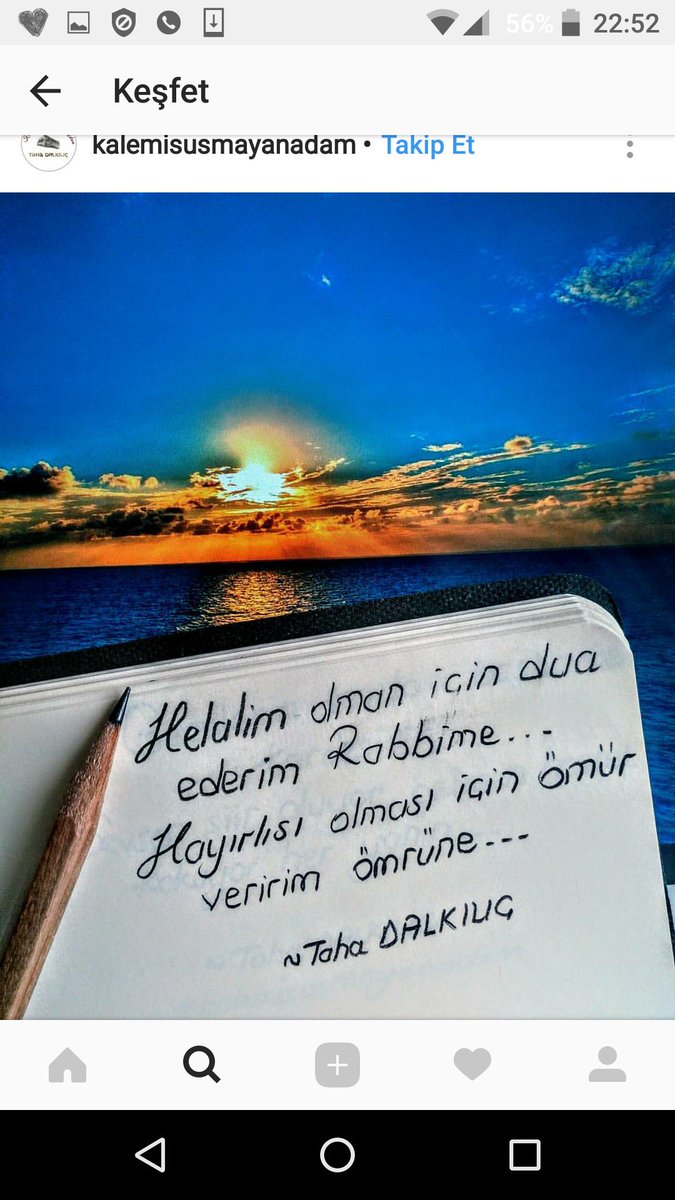 56% 22:52
Keşfet
TAHA DALKILIÇ
kalemisusmayanadam • Takip Et
Helalim olman için dua
ederim Rabbime...
Hayırlısı olması için ömür
veririm ömrüne...
~Taha DALKILIÇ